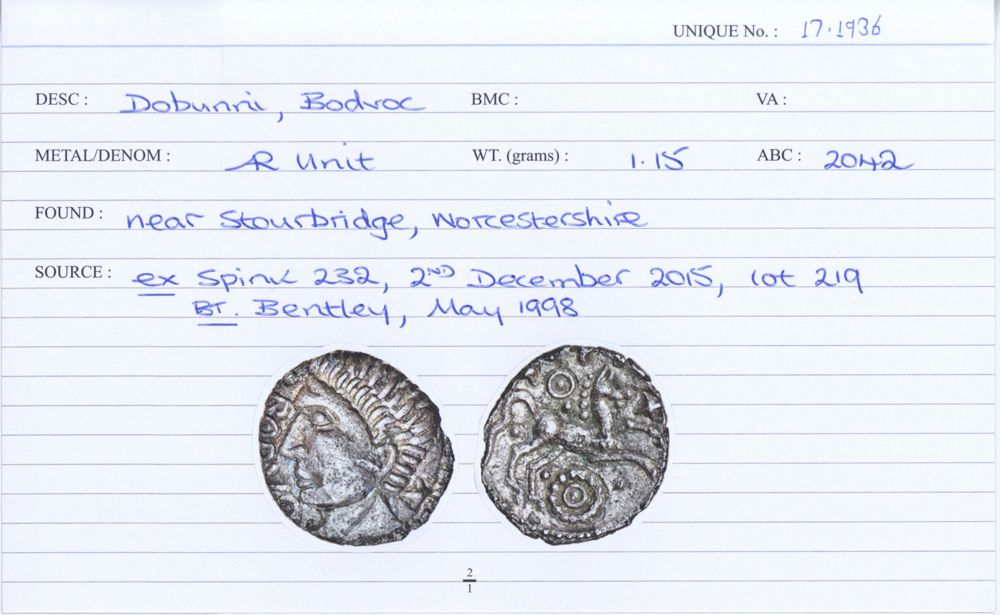 UNIQUE No. : 17.1936
DESC : Dobunni, Bodvoc BMC : VA :
METAL/DENOM : AR Unit WT. (grams) : 1.15 ABC : 2042
FOUND : near Stourbridge, Worcestershire
SOURCE : ex Spink 232, 2ND December 2015, lot 219
BT. Bentley, May 1998
2
1